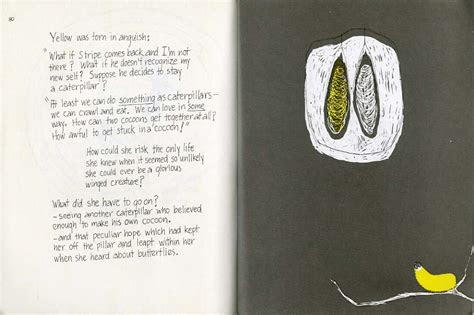 80
Yellow was torn in anguish:
"What if Stripe comes back and I'm not
there? What if he doesn't recognize my
new self? Suppose he decides to stay
a caterpillar?
"At least we can do something as caterpillars—
we can crawl and eat. We can love in some
way. How can two cocoons get together at all?
How awful to get stuck in a cocoon!"
How could she risk the only life
she knew when it seemed so unlikely
she could ever be a glorious
winged creature?
What did she have to go on?
- seeing another caterpillar who believed
enough to make his own cocoon.
- and that peculiar hope which had kept
her off the pillar and leapt within her
when she heard about butterflies.